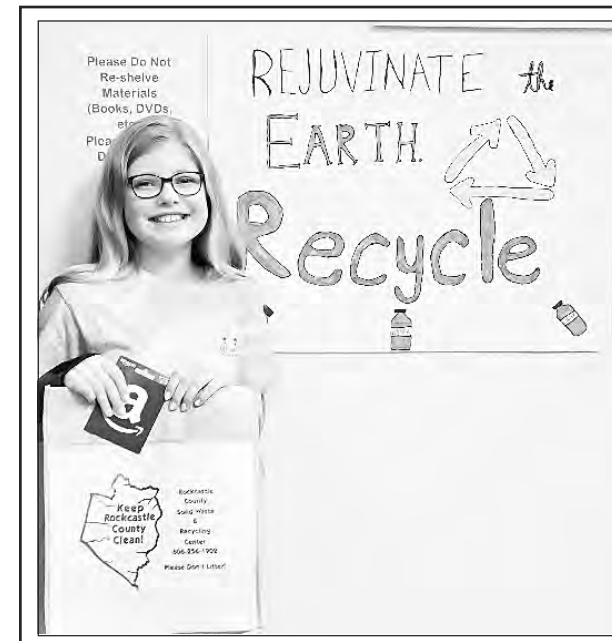 Please Do Not
Re-shelve
Materials
(Books, DVDs,
REJUVINATE the
EARTH.
Recycle
a
Keep
Rockcastle
County
Clean!
Rockcastle
County
Solid Waste
&
Recycling
Center
606-256-1902
Please Don't Litter!